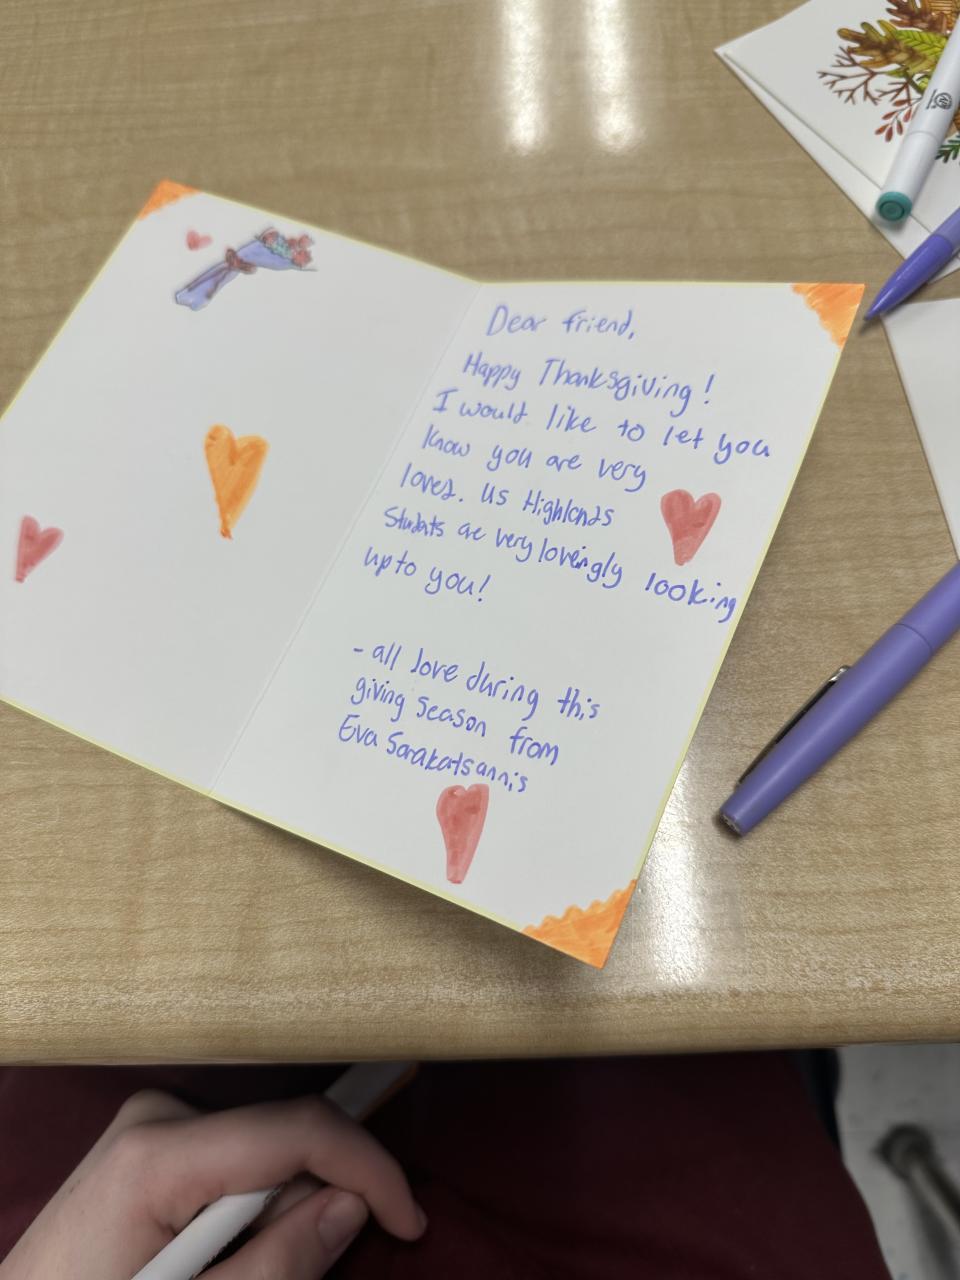 Dear friend,
Happy Thanksgiving!
I would like to let you
know you are very
loved. Us Highlands
Students are very lovingly looking
up to you!
- all love during this
giving season from
Eva Sarakatsannis